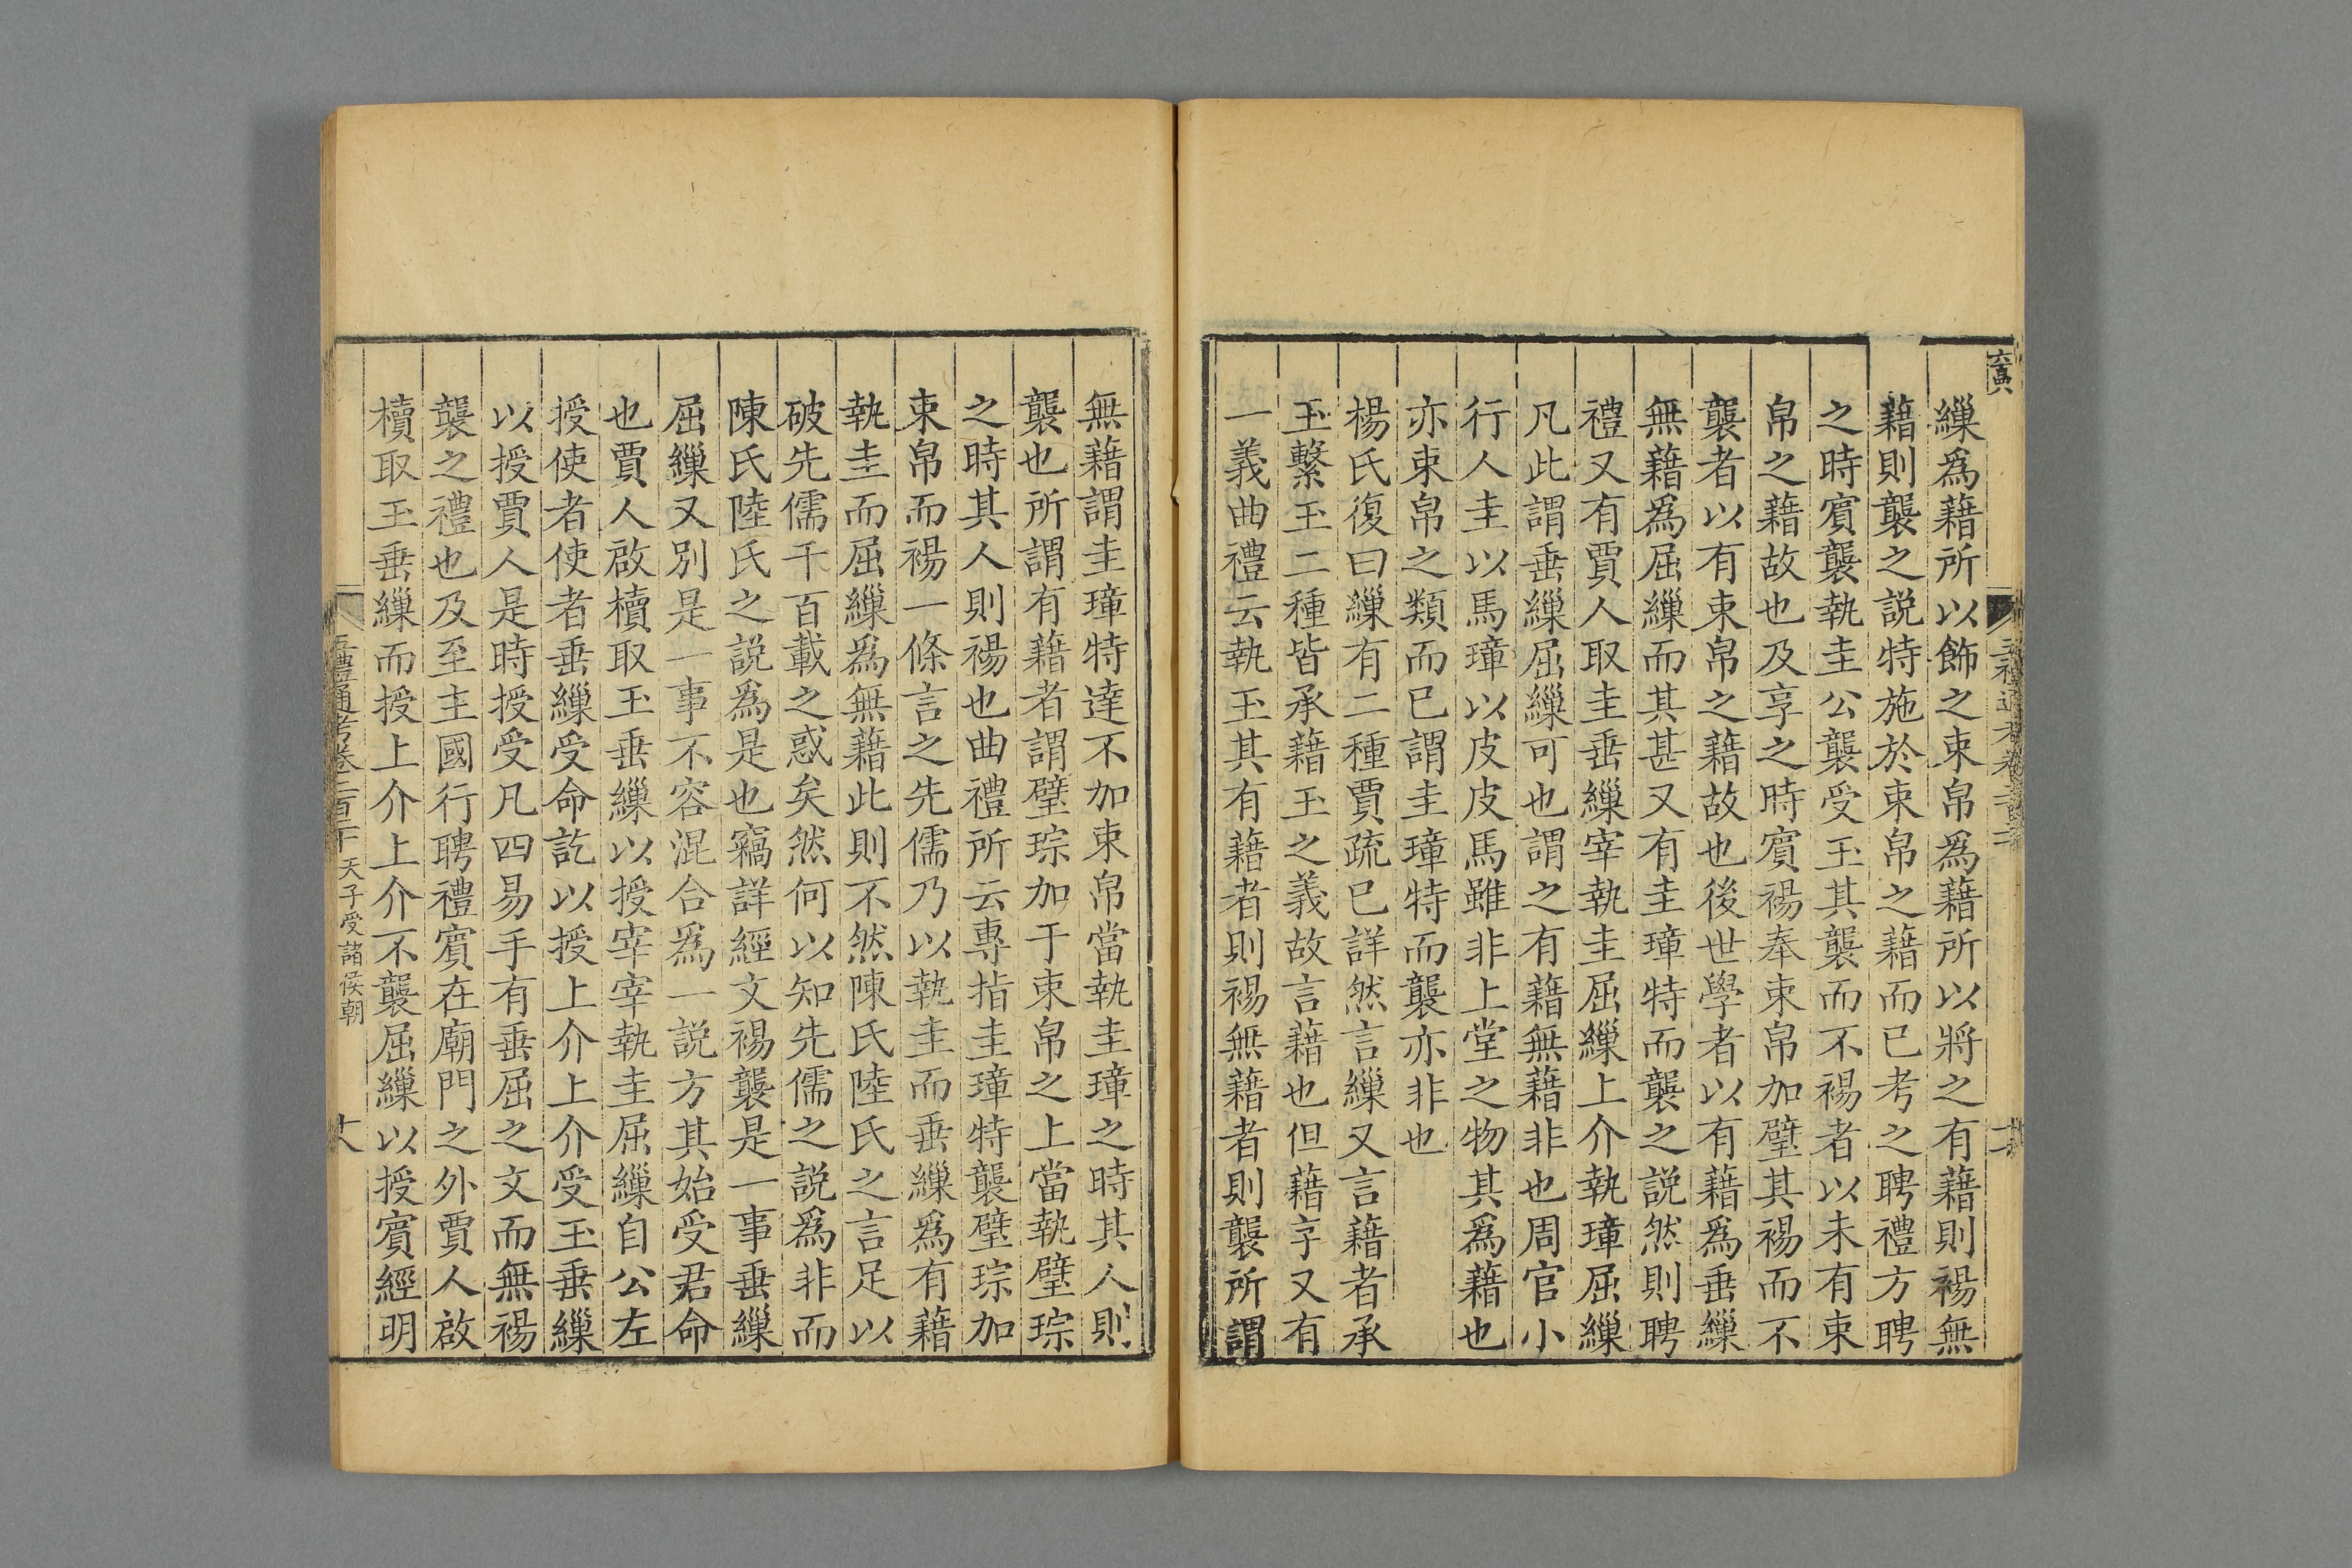 繅爲藉所以飾之束帛爲藉所以將之有藉則裼無
藉則襲之説特施於束帛之藉而已考之聘禮方聘
之時賓襲執圭公襲受玉其襲而不裼者以未有束
帛之藉故也及享之時賓裼奉束帛加璧其裼而不
襲者以有束帛之藉故也後世學者以有藉爲垂繅
無藉爲屈繅而其甚又有圭璋特而襲之説然則聘
禮又有賈人取圭垂繅宰執圭屈繅上介執璋屈繅
凡此謂垂繅屈繅可也謂之有藉無藉非也周官小
行人圭以馬璋以皮皮馬雖非上堂之物其爲藉也
亦束帛之類而已謂圭璋特而襲亦非也
楊氏復曰繅有二種賈疏已詳然言繅又言藉者承
玉繫玉二種皆承藉玉之義故言藉也但藉字又有
一義曲禮云執玉其有藉者則裼無藉者則襲所謂
無藉謂圭璋特達不加束帛當執圭璋之時其人則
襲也所謂有藉者謂璧琮加于束帛之上當執璧琮
之時其人則裼也曲禮所云專指圭璋特襲璧琮加
束帛而裼一條言之先儒乃以執圭而垂繅爲有藉
執圭而屈繅爲無藉此則不然陳氏陸氏之言足以
破先儒千百載之惑矣然何以知先儒之説爲非而
陳氏陸氏之説爲是也竊詳經文裼襲是一事垂繅
屈繅又別是一事不容混合爲一説方其始受君命
也賈人啟櫝取玉垂繅以授宰宰執圭屈繅自公左
授使者使者垂繅受命訖以授上介上介受玉垂繅
以授賈人是時授受凡四易手有垂屈之文而無裼
襲之禮也及至主國行聘禮賓在廟門之外賈人啟
櫝取玉垂繅而授上介上介不襲屈繅以授賓經明
五禮通考卷二百二十 天子受諸侯朝 十八